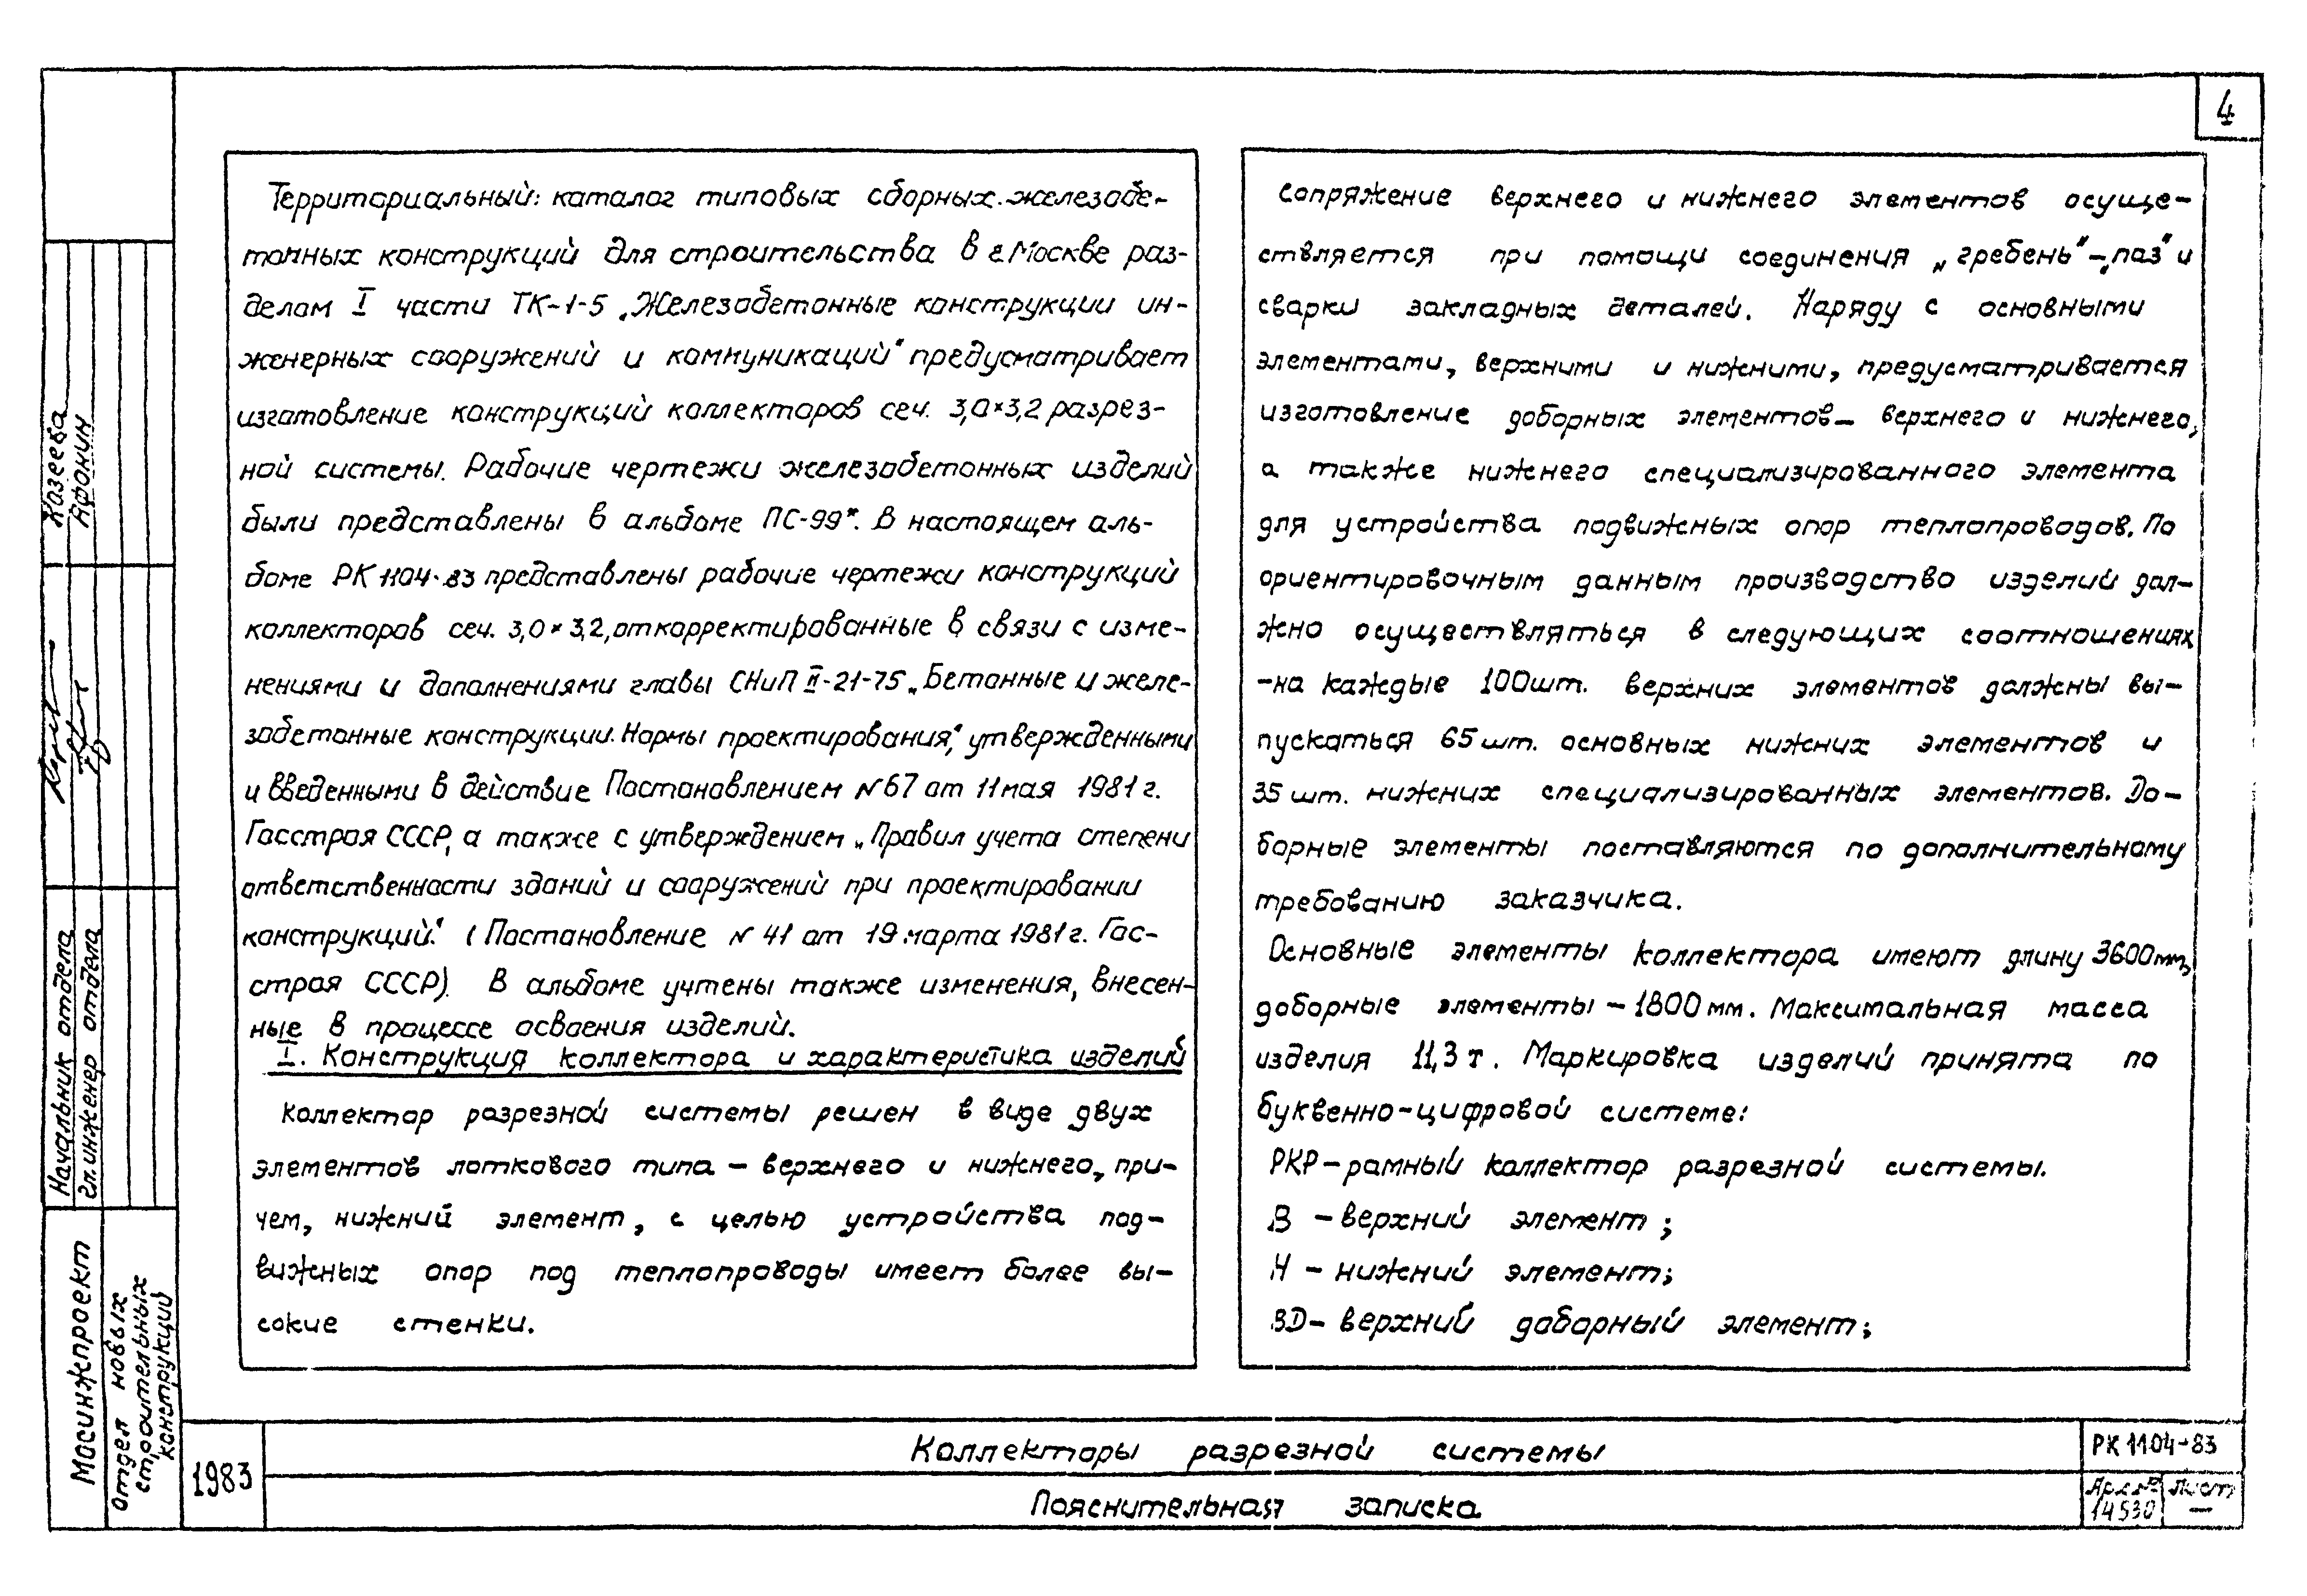 4
Территориальный каталог типовых сборных железобе-
тонных конструкций для строительства в г. Москве раз-
делом I части ТК-1-5 „Железобетонные конструкции ин-
женерных сооружений и коммуникаций" предусматривает
изготовление конструкций коллекторов сеч. 3,0×3,2 разрез-
ной системы. Рабочие чертежи железобетонных изделий
были представлены в альбоме ПС-99*. В настоящем аль-
боме РК 1104-83 представлены рабочие чертежи конструкций
коллекторов сеч. 3,0×3,2, откорректированные в связи с изме-
нениями и дополнениями главы СНиП II-21-75 „Бетонные и желе-
зобетонные конструкции. Нормы проектирования", утвержденными
и введенными в действие Постановлением №67 от 11 мая 1981 г.
Госстроя СССР, а также с утверждением „Правил учета степени
ответственности зданий и сооружений при проектировании
конструкций." (Постановление № 41 от 19 марта 1981 г. Гос-
строя СССР). В альбоме учтены также изменения, внесен-
ные в процессе освоения изделий.
I. Конструкция коллектора и характеристика изделий
Коллектор разрезной системы решен в виде двух
элементов лоткового типа – верхнего и нижнего, при-
чем, нижний элемент, с целью устройства под-
вижных опор под теплопроводы имеет более вы-
сокие стенки.
Сопряжение верхнего и нижнего элементов осуще-
ствляется при помощи соединения „гребень"-„паз" и
сварки закладных деталей. Наряду с основными
элементами, верхними и нижними, предусматривается
изготовление доборных элементов – верхнего и нижнего,
а также нижнего специализированного элемента
для устройства подвижных опор теплопроводов. По
ориентировочным данным производство изделий дол-
жно осуществляться в следующих соотношениях
-на каждые 100 шт. верхних элементов должны вы-
пускаться 65 шт. основных нижних элементов и
35 шт. нижних специализированных элементов. До-
борные элементы поставляются по дополнительному
требованию заказчика.
Основные элементы коллектора имеют длину 3600 мм,
доборные элементы – 1800 мм. Максимальная масса
изделия 11,3 т. Маркировка изделий принята по
буквенно-цифровой системе:
РКР – рамный коллектор разрезной системы.
В – верхний элемент;
Н – нижний элемент;
ВД – верхний доборный элемент;
Козеева
Афонин
Начальник отдела
Гл. инженер отдела
Мосинжпроект
Отдел новых
строительных
конструкций
1983
Коллекторы разрезной системы
Пояснительная записка
РК 1104-83
Арх. №
14530
Лист
—